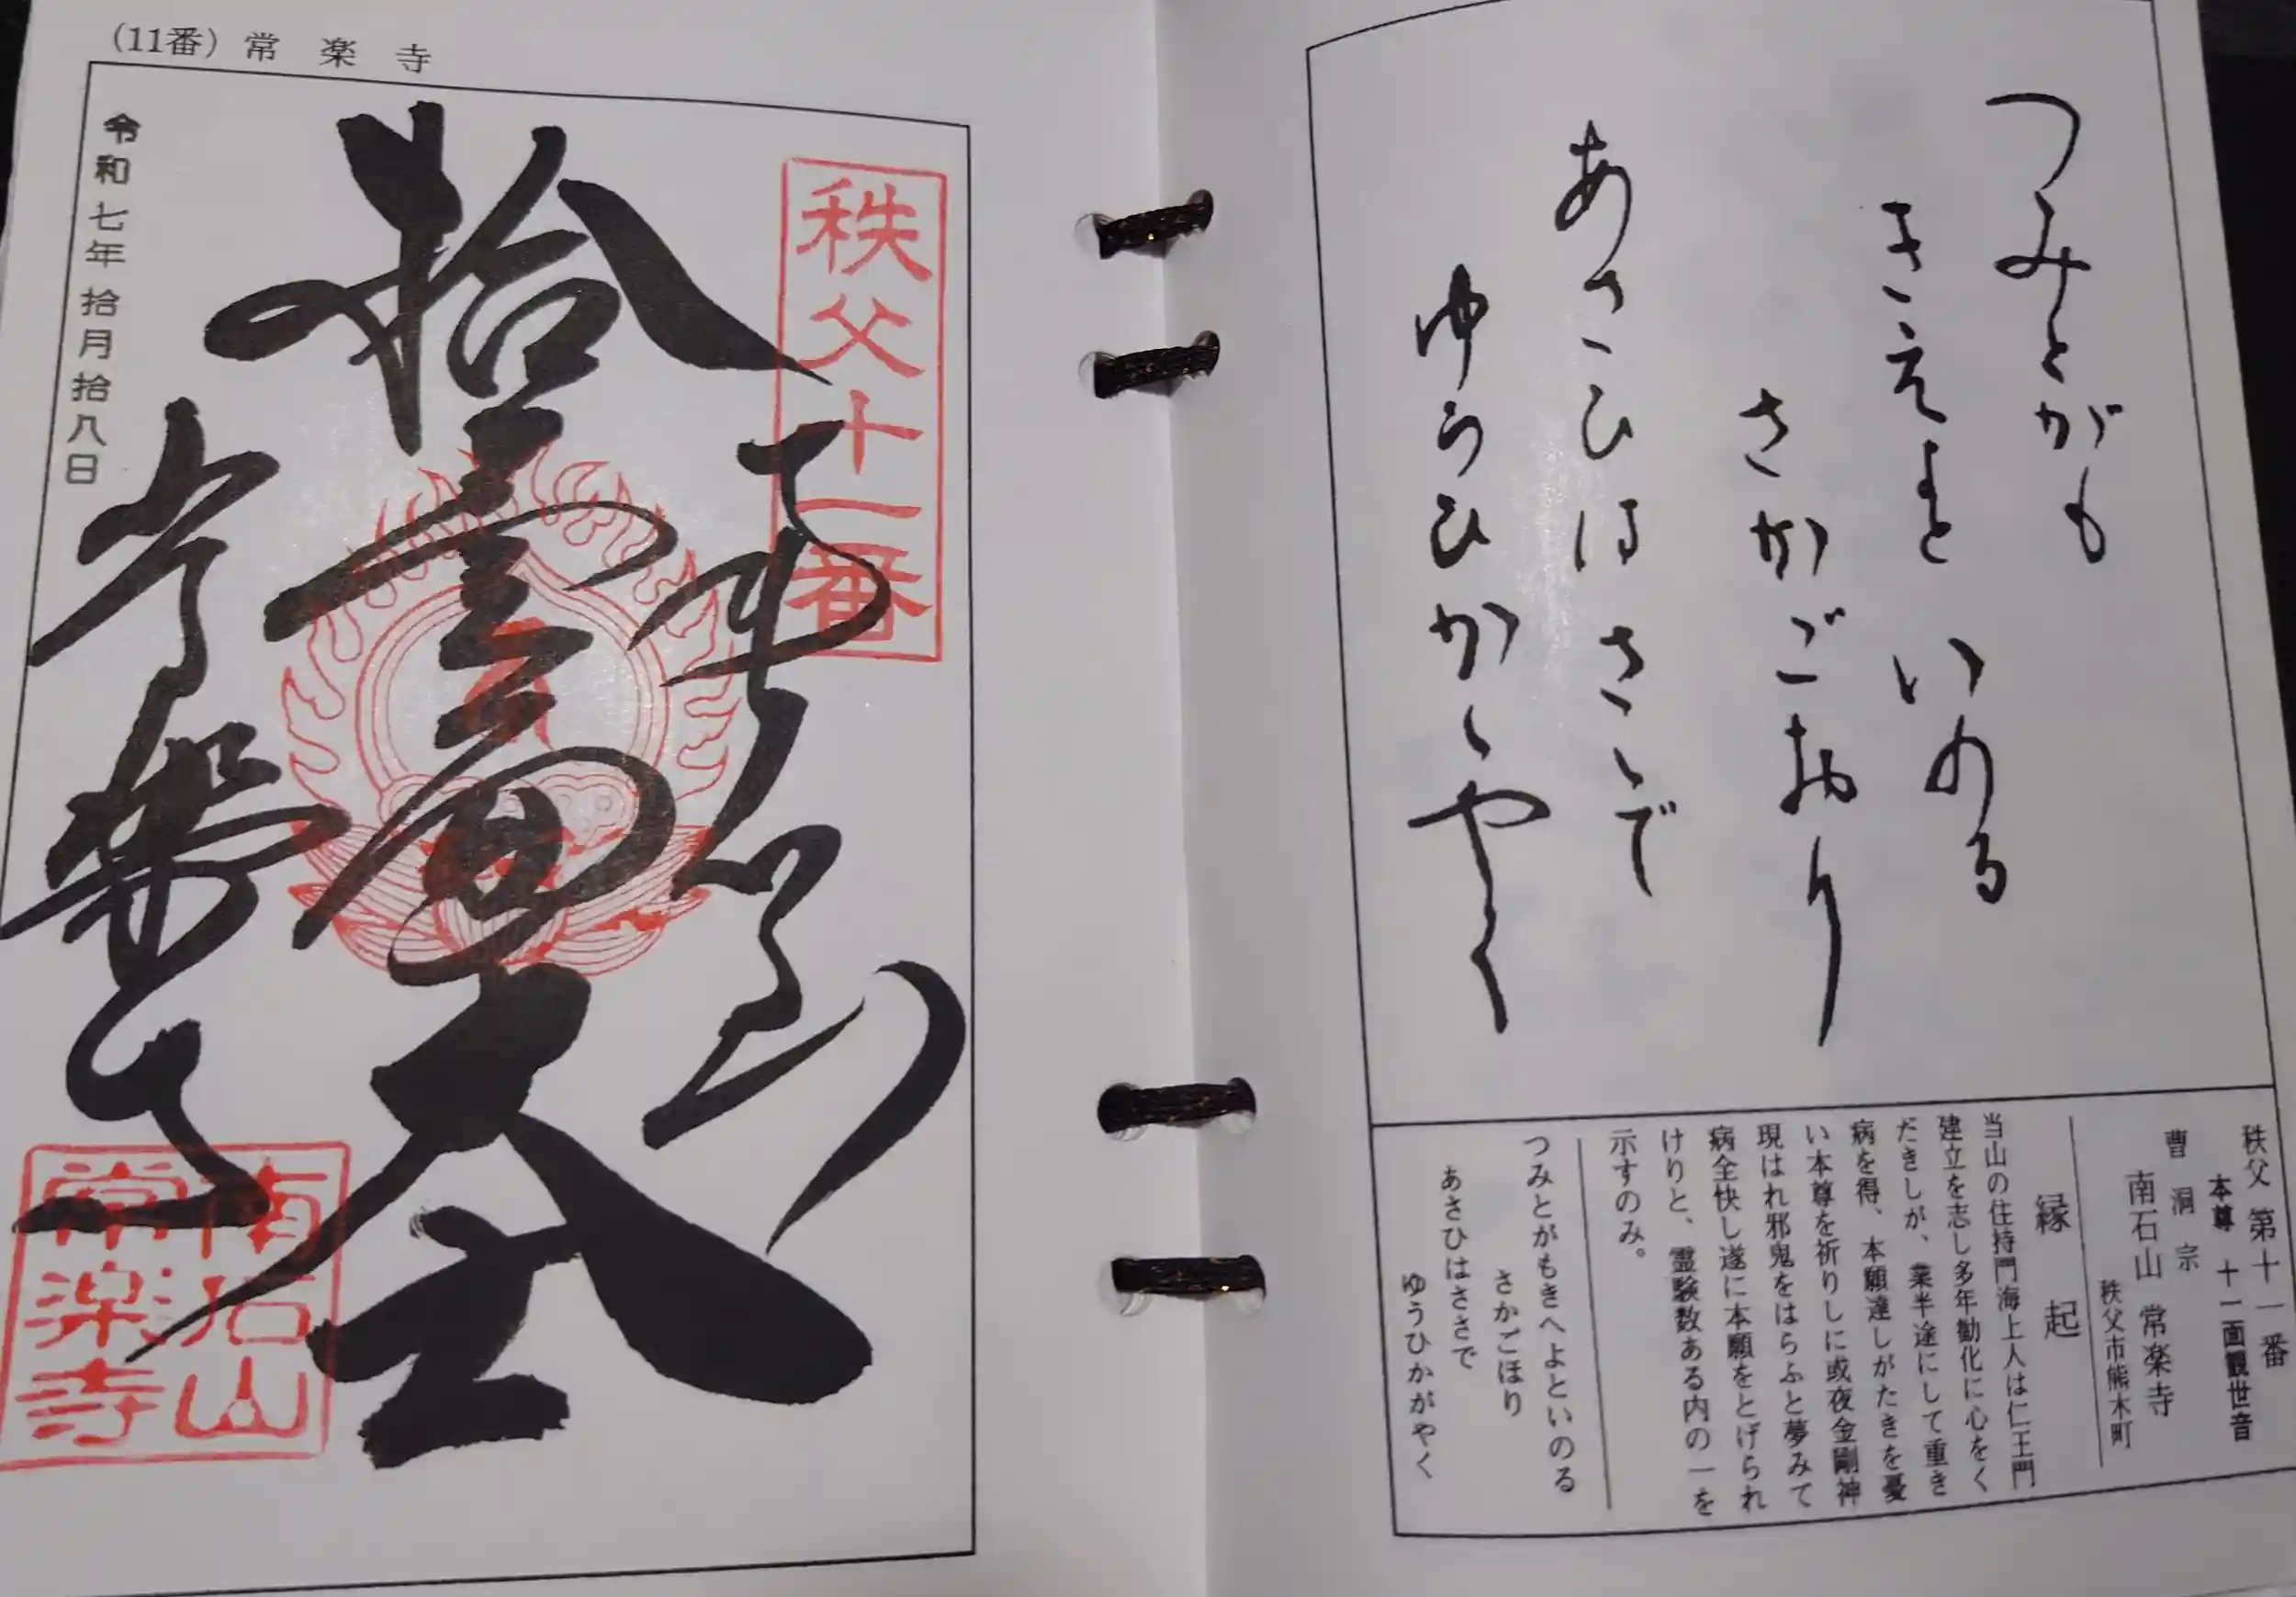 (11番) 常楽寺
秩父十一番
奉拝
拾壹面大士
常楽寺
令和七年拾月拾八日
南石山
常楽寺
つみとがも
きえよと いのる
さかごおり
あさひはささで
ゆうひかがやく
秩父 第十一番
本尊 十一面観世音
曹洞宗
南石山 常楽寺
秩父市熊木町
縁起
当山の住持門海上人は仁王門
建立を志し多年勧化に心をく
だきしが、業半途にして重き
病を得、本願達しがたきを憂
い本尊を祈りしに或夜金剛神
現はれ邪鬼をはらふと夢みて
病全快し遂に本願をとげられ
けりと、霊験数ある内の一を
示すのみ。
つみとがもきへよといのる
さかごほり
あさひはささで
ゆうひかがやく